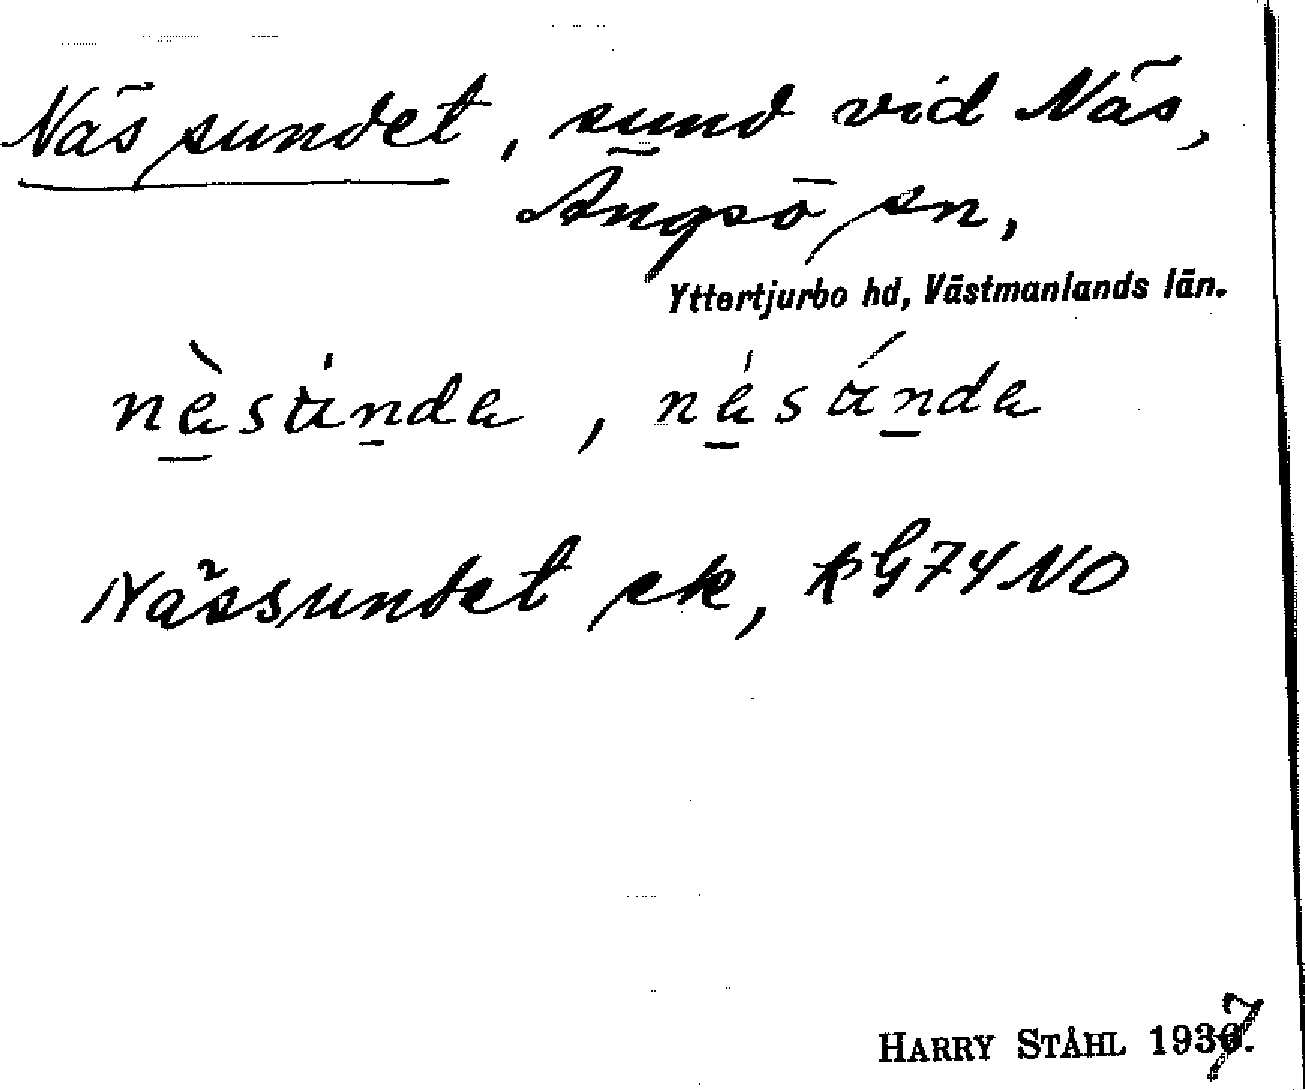 Näs sundet, sund vid Näs,
Ängsö sn,
Yttertjurbo hd, Västmanlands län.
Nässundet ek,
HARRY STÅHL 1937.